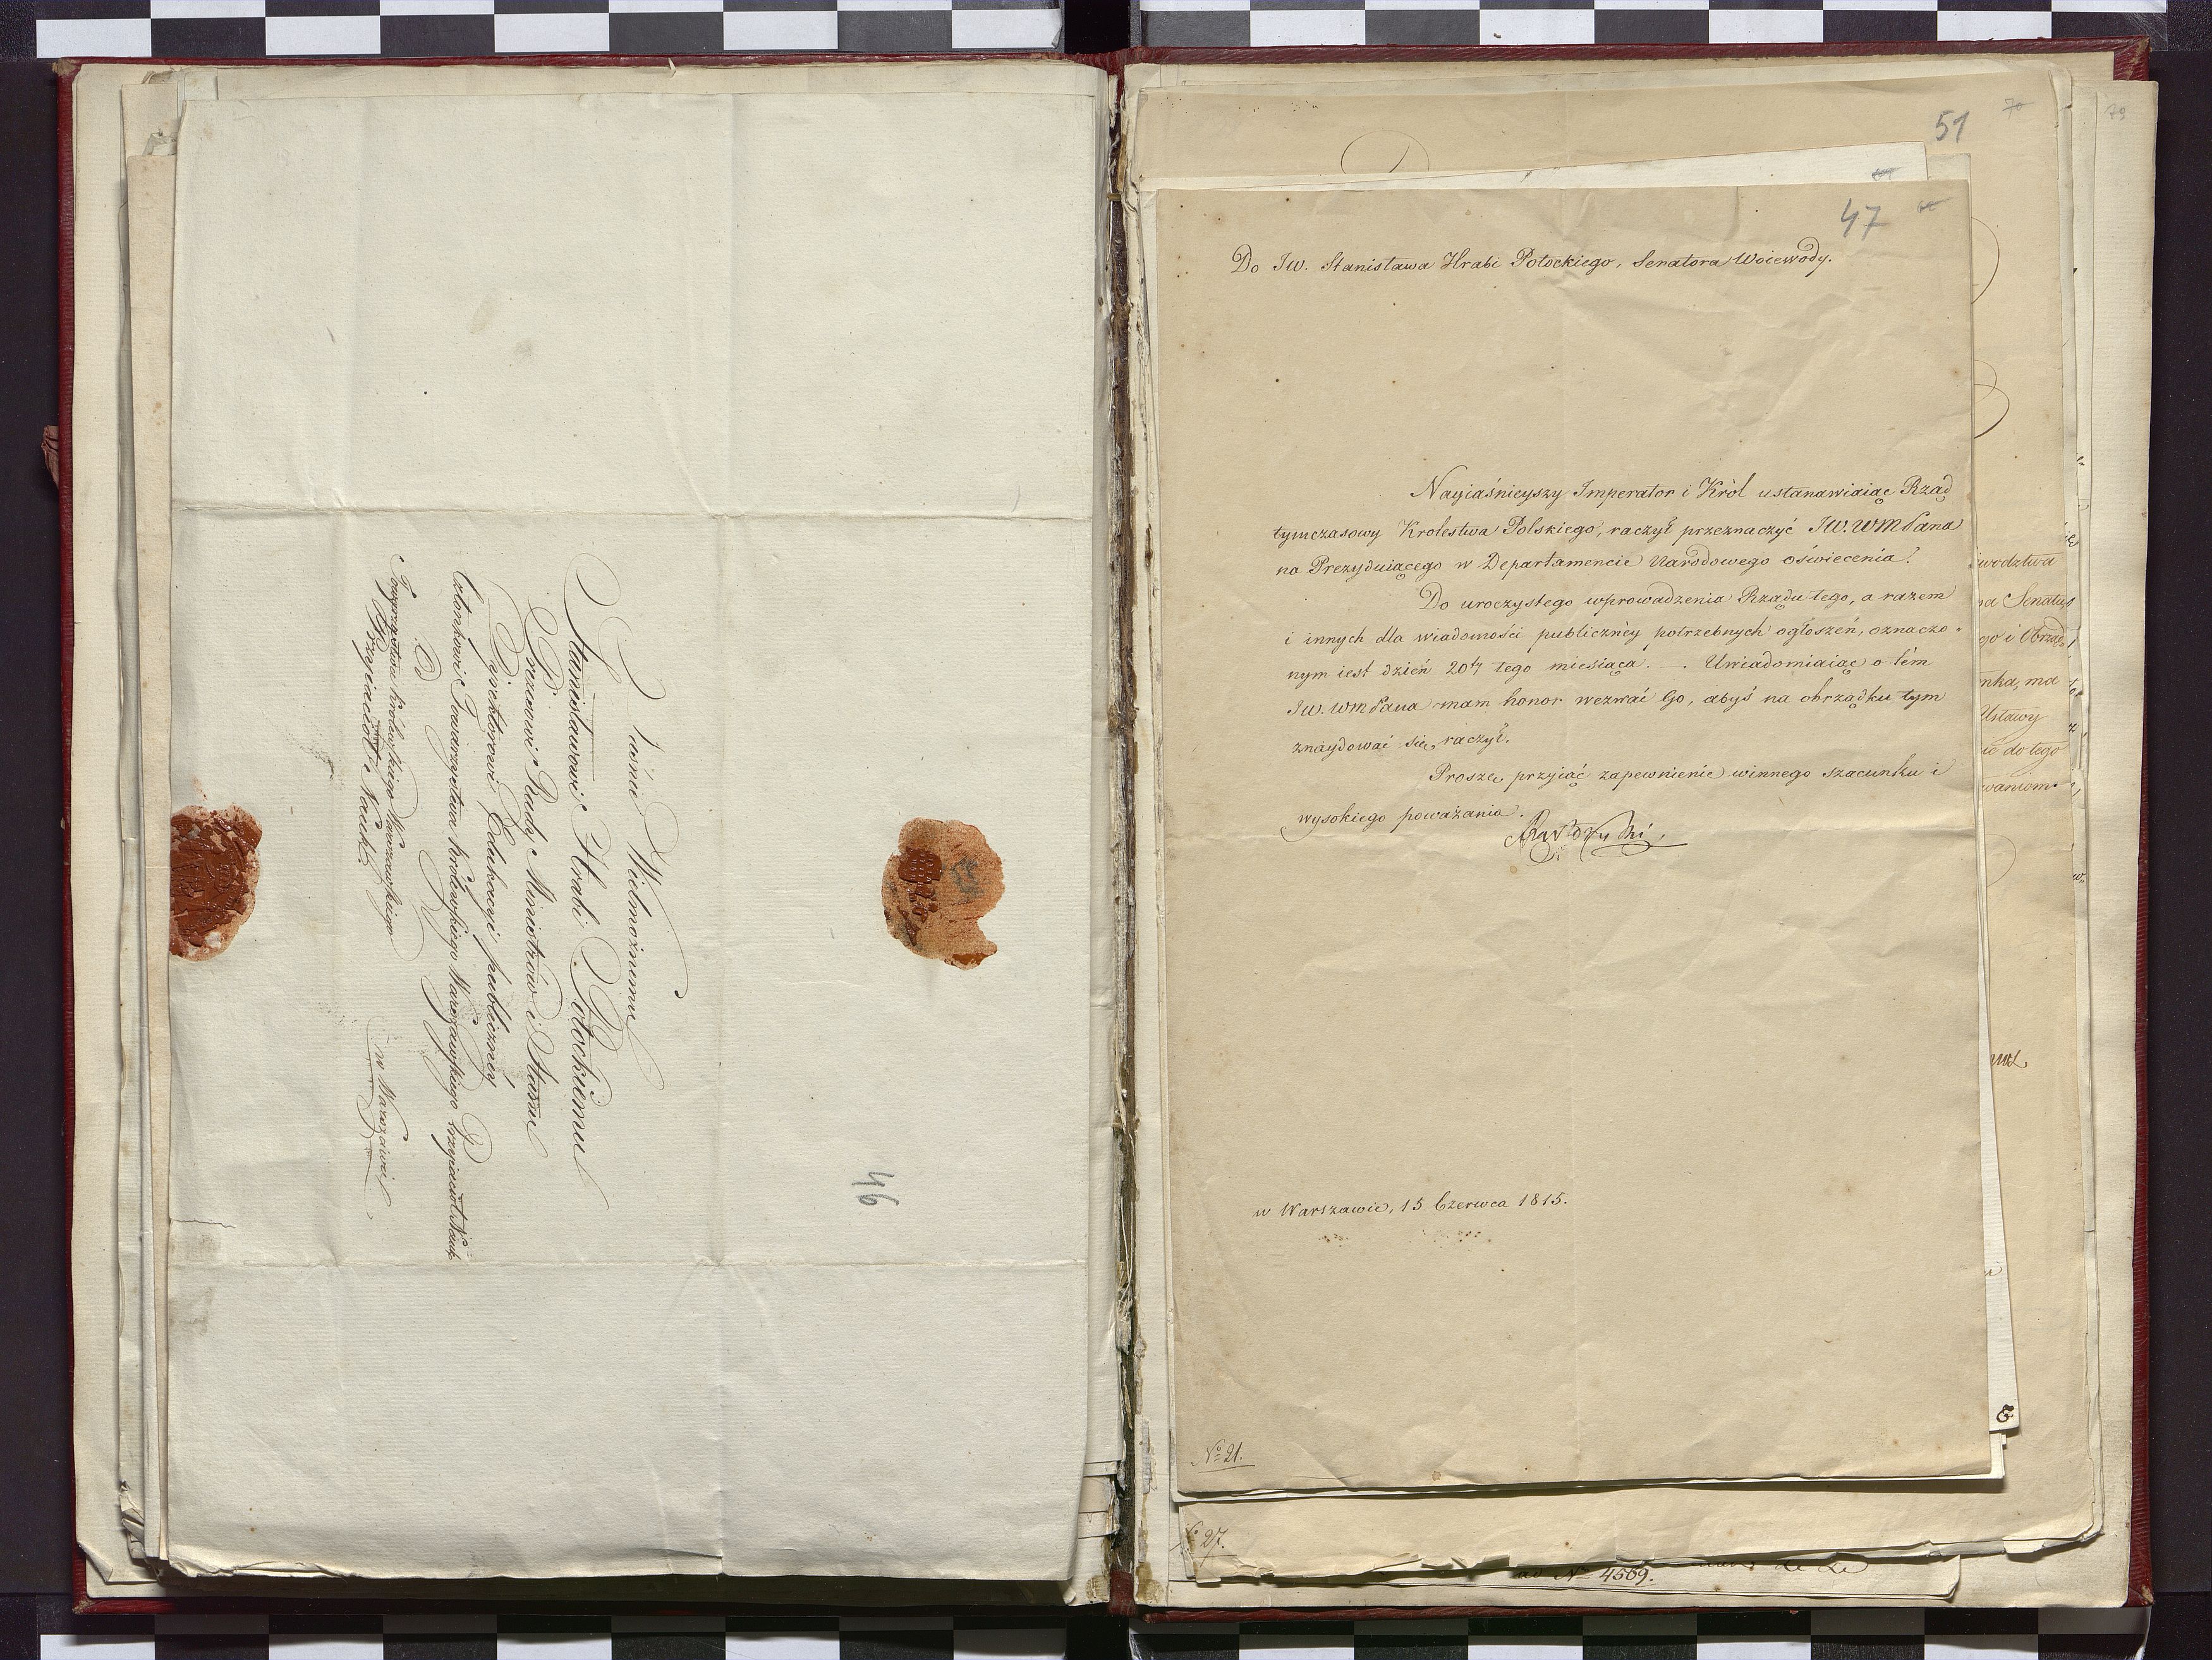 Jaśnie Wielmożnemu
Stanisławowi Hrabi Potockiemu
Prezesowi Rady Ministrów i Stanu
Dyrektorowi Edukacyi publiczney
Członkowi Towarzystwa Królewskiego Warszawskiego Przyiaciół Nauk
Od
Towarzystwa królewskiego Warszawskiego
Przyiaciół Nauk
w Warszawie
46
51
70
79
47
Do JW. Stanisława Hrabi Potockiego, Senatora Woiewody.
Nayiaśnieyszy Imperator i Król ustanawiaiąc Rząd
tymczasowy Krolestwa Polskiego, raczył przeznaczyć JW. WM Pana
na Prezyduiącego w Departamencie Narodowego oświecenia.
Do uroczystego wprowadzenia Rządu tego, a razem
i innych dla wiadomości publiczney potrzebnych ogłoszeń, oznaczo=
nym iest dzień 20ty tego miesiąca. —. Uwiadomiaiąc o tém
JW. WM Pana mam honor wezwać Go, abyś na obrządku tym
znaydować się raczył.
Proszę przyiąć zapewnienie winnego szacunku i
wysokiego poważania.
w Warszawie, 15 Czerwca 1815.
No 21.
27.
ad No 4569.
iwodztwa
na Senatu
go i Obrzad
nka, ma
Ustawy
ie do tego
waniom